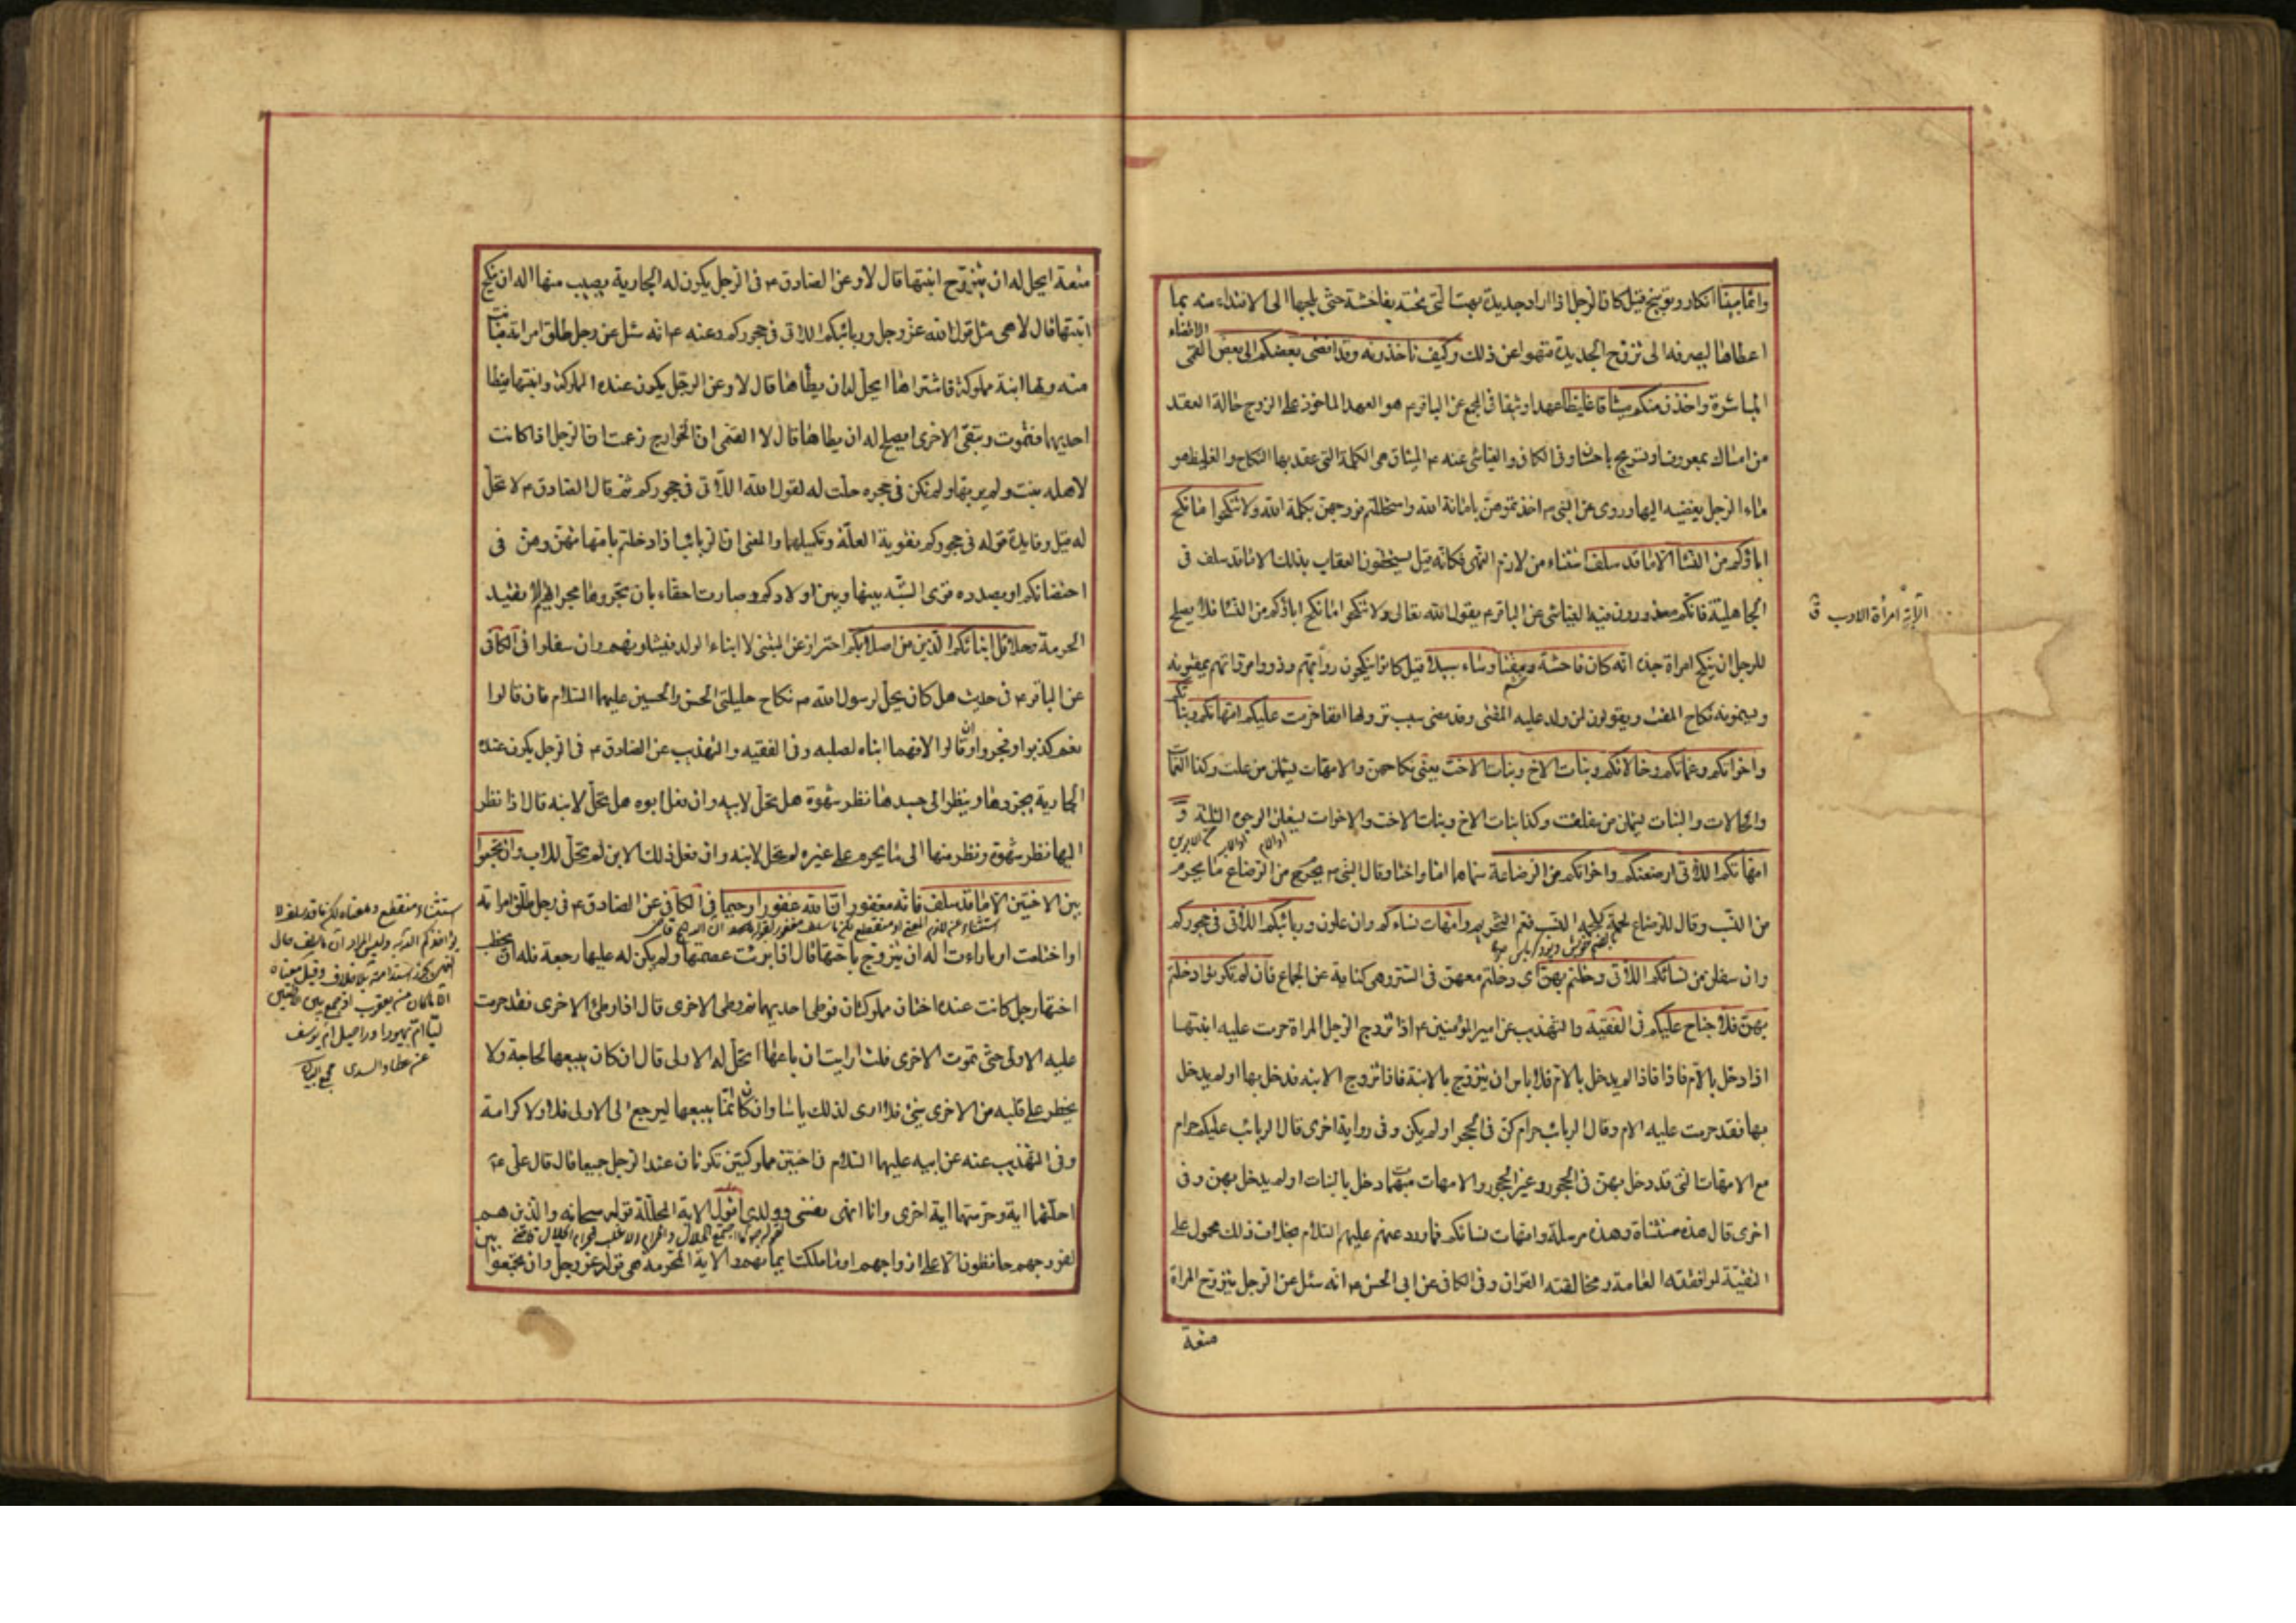 واثما مبينا انكار وتوبيخ قيل كان الرجل اذا اراد جديدة بهت التي تحته بفاحشة حتى يلجها الى الافتداء منه بما
اعطاها ليصرفه الى تزوج الجديدة فنهوا عن ذلك وكيف تاخذونه وقد افضى بعضكم الى بعض الافضاء
المباشرة واخذن منكم ميثاقا غليظا عهدا وثيقا في المجمع عن الباقر ع هو العهد الماخوذ على الزوج حالة العقد
من امساك بمعروف او تسريح باحسان وفي الكافي والعياشي عنه ع الميثاق هي الكلمة التي عقد بها النكاح والغليظ هو
ماء الرجل يفضيه اليها وروي عن النبي ص اخذتموهن بامانة الله واستحللتم فروجهن بكلمة الله ولا تنكحوا ما نكح
اباؤكم من النساء الا ما قد سلف استثناء من لازم النهي فكانه قيل تستحقون العقاب بذلك الا ما قد سلف في
الجاهلية فانكم معذورون فيه العياشي عن الباقر ع يقول الله تعالى ولا تنكحوا ما نكح اباؤكم من النساء فلا يصلح
للرجل ان ينكح امراة جده انه كان فاحشة ومقتا وساء سبيلا قيل كانوا ينكحون روابهم وذووا مروّاتهم يمقتونه
ويسمونه نكاح المقت ويقولون لمن ولد عليه المقتي وقد مضى سبب نزولها انفا حرمت عليكم امهاتكم وبناتكم
واخواتكم وعماتكم وخالاتكم وبنات الاخ وبنات الاخت يعني نكاحهن والامهات يشملن من علت وكذا العمات
والخالات والبنات يشملن من سفلت وكذا بنات الاخ وبنات الاخت والاخوات يشملن الوجوه الثلثة و
امهاتكم اللاتي ارضعنكم واخواتكم من الرضاعة سماها اما واختا وقال النبي ص يحرم من الرضاع ما يحرم
من النسب وقال الرضاع لحمة كلحمة النسب فعم التحريم وامهات نساءكم وان علون وربائبكم اللاتي في حجوركم
وان سفلن من نسائكم اللاتي دخلتم بهن اي دخلتم معهن في الستر وهي كناية عن الجماع فان لم تكونوا دخلتم
بهن فلا جناح عليكم في الفقيه والتهذيب عن امير المؤمنين ع اذا تزوج الرجل المراة حرمت عليه ابنتها
اذا دخل بالام فاذا لم يدخل بالام فلا باس ان يتزوج بالابنة فاذا تزوج الابنة فدخل بها او لم يدخل
بها فقد حرمت عليه الام وقال الربائب حرام كن في الحجر او لم يكن وفي رواية اخرى قال الربائب عليكم حرام
مع الامهات التي قد دخل بهن في الحجور وغير الحجور والامهات مبهمات دخل بالبنات او لم يدخل بهن وفي
اخرى قال هذه مستثناة وهذه مرسلة وامهات نسائكم فما ورد عنهم عليهم السلام بخلاف ذلك محمول على
التقية لموافقته العامة ومخالفته القران وفي الكافي عن ابي الحسن ع انه سئل عن الرجل يتزوج المراة
متعة
الاية امرأة الاب ق
متعة ايحل له ان يتزوج ابنتها قال لا وعن الصادق ع في الرجل يكون له الجارية يصيب منها اله ان ينكح
ابنتها قال لا هي مثل قول الله عز وجل وربائبكم اللاتي في حجوركم وعنه ع انه سئل عن رجل طلق امراته فبانت
منه ولها ابنة مملوكة فاشتراها ايحل له ان يطأها قال لا وعن الرجل يكون عنده المملوكة وابنتها فيطا
احديهما فتموت وتبقى الاخرى ايصلح له ان يطاها قال لا القمي ان الخوارج زعمت ان الرجل اذا كانت
لاهله بنت ولم يربها ولم تكن في حجره حلت له لقول الله اللاتي في حجوركم ثم قال الصادق ع لا تحل
له قيل وفايدة قوله في حجوركم تقوية العلة وتكميلها والمعنى ان الربائب اذا دخلتم بامهاتهن وهن في
احتضانكم او بصدده قوى الشبه بينها وبين اولادكم وصارت احقاء بان تجروها مجراهم لا تقييد
الحرمة وحلائل ابنائكم الذين من اصلابكم احتراز عن المتبنى لا ابناء الولد فيشملونهم وان سفلوا في الكافي
عن الباقر ع في حديث هل كان يحل لرسول الله ص نكاح حليلتي الحسن والحسين عليهما السلام فان قالوا
نعم كذبوا وفجروا وان قالوا لا فهما ابناه لصلبه وفي الفقيه والتهذيب عن الصادق ع في الرجل يكون عنده
الجارية يجردها وينظر الى جسدها نظر شهوة هل تحل لابيه وان فعل ابوه هل تحل لابنه قال اذا نظر
اليها نظر شهوة ونظر منها الى ما يحرم على غيره لم تحل لابنه وان فعل ذلك الابن لم تحل للاب وان تجمعوا
بين الاختين الا ما قد سلف فانه مغفور ان الله غفورا رحيما في الكافي عن الصادق ع في رجل طلق امراته
او اختلعت او باراءت اله ان يتزوج باختها قال اذا برئت عصمتها ولم يكن له عليها رجعة فله ان يخطب
اختها رجل كانت عنده اختان مملوكتان فوطى احديهما ثم وطى الاخرى قال اذا وطئ الاخرى فقد حرمت
عليه الاولى حتى تموت الاخرى قلت ارايت ان باعها اتحل له الاولى قال ان كان يبيعها لحاجة ولا
يخطر على قلبه من الاخرى شئ فلا ارى لذلك باسا وان كان انما يبيعها ليرجع الى الاولى فلا ولا كرامة
وفي التهذيب عنه عن ابيه عليهما السلام في اختين مملوكتين تكونان عند الرجل جميعا قال قال علي ع
احلتهما اية وحرمتهما اية اخرى وانا انهى نفسي وولدي اقول الاية المحللة قوله سبحانه والذين هم
لفروجهم حافظون الا على ازواجهم او ما ملكت ايمانهم والاية المحرمة هي قوله عز وجل وان تجمعوا بين
استثناء منقطع ومعناه لكن ما قد سلف لا
يؤاخذكم الله به وليس المراد ان ما سلف حال
الا ما كان من يعقوب اذ جمع بين الاختين
ليا ام يهودا وراحيل ام يوسف
عن عطاء والسدي مجمع البيان